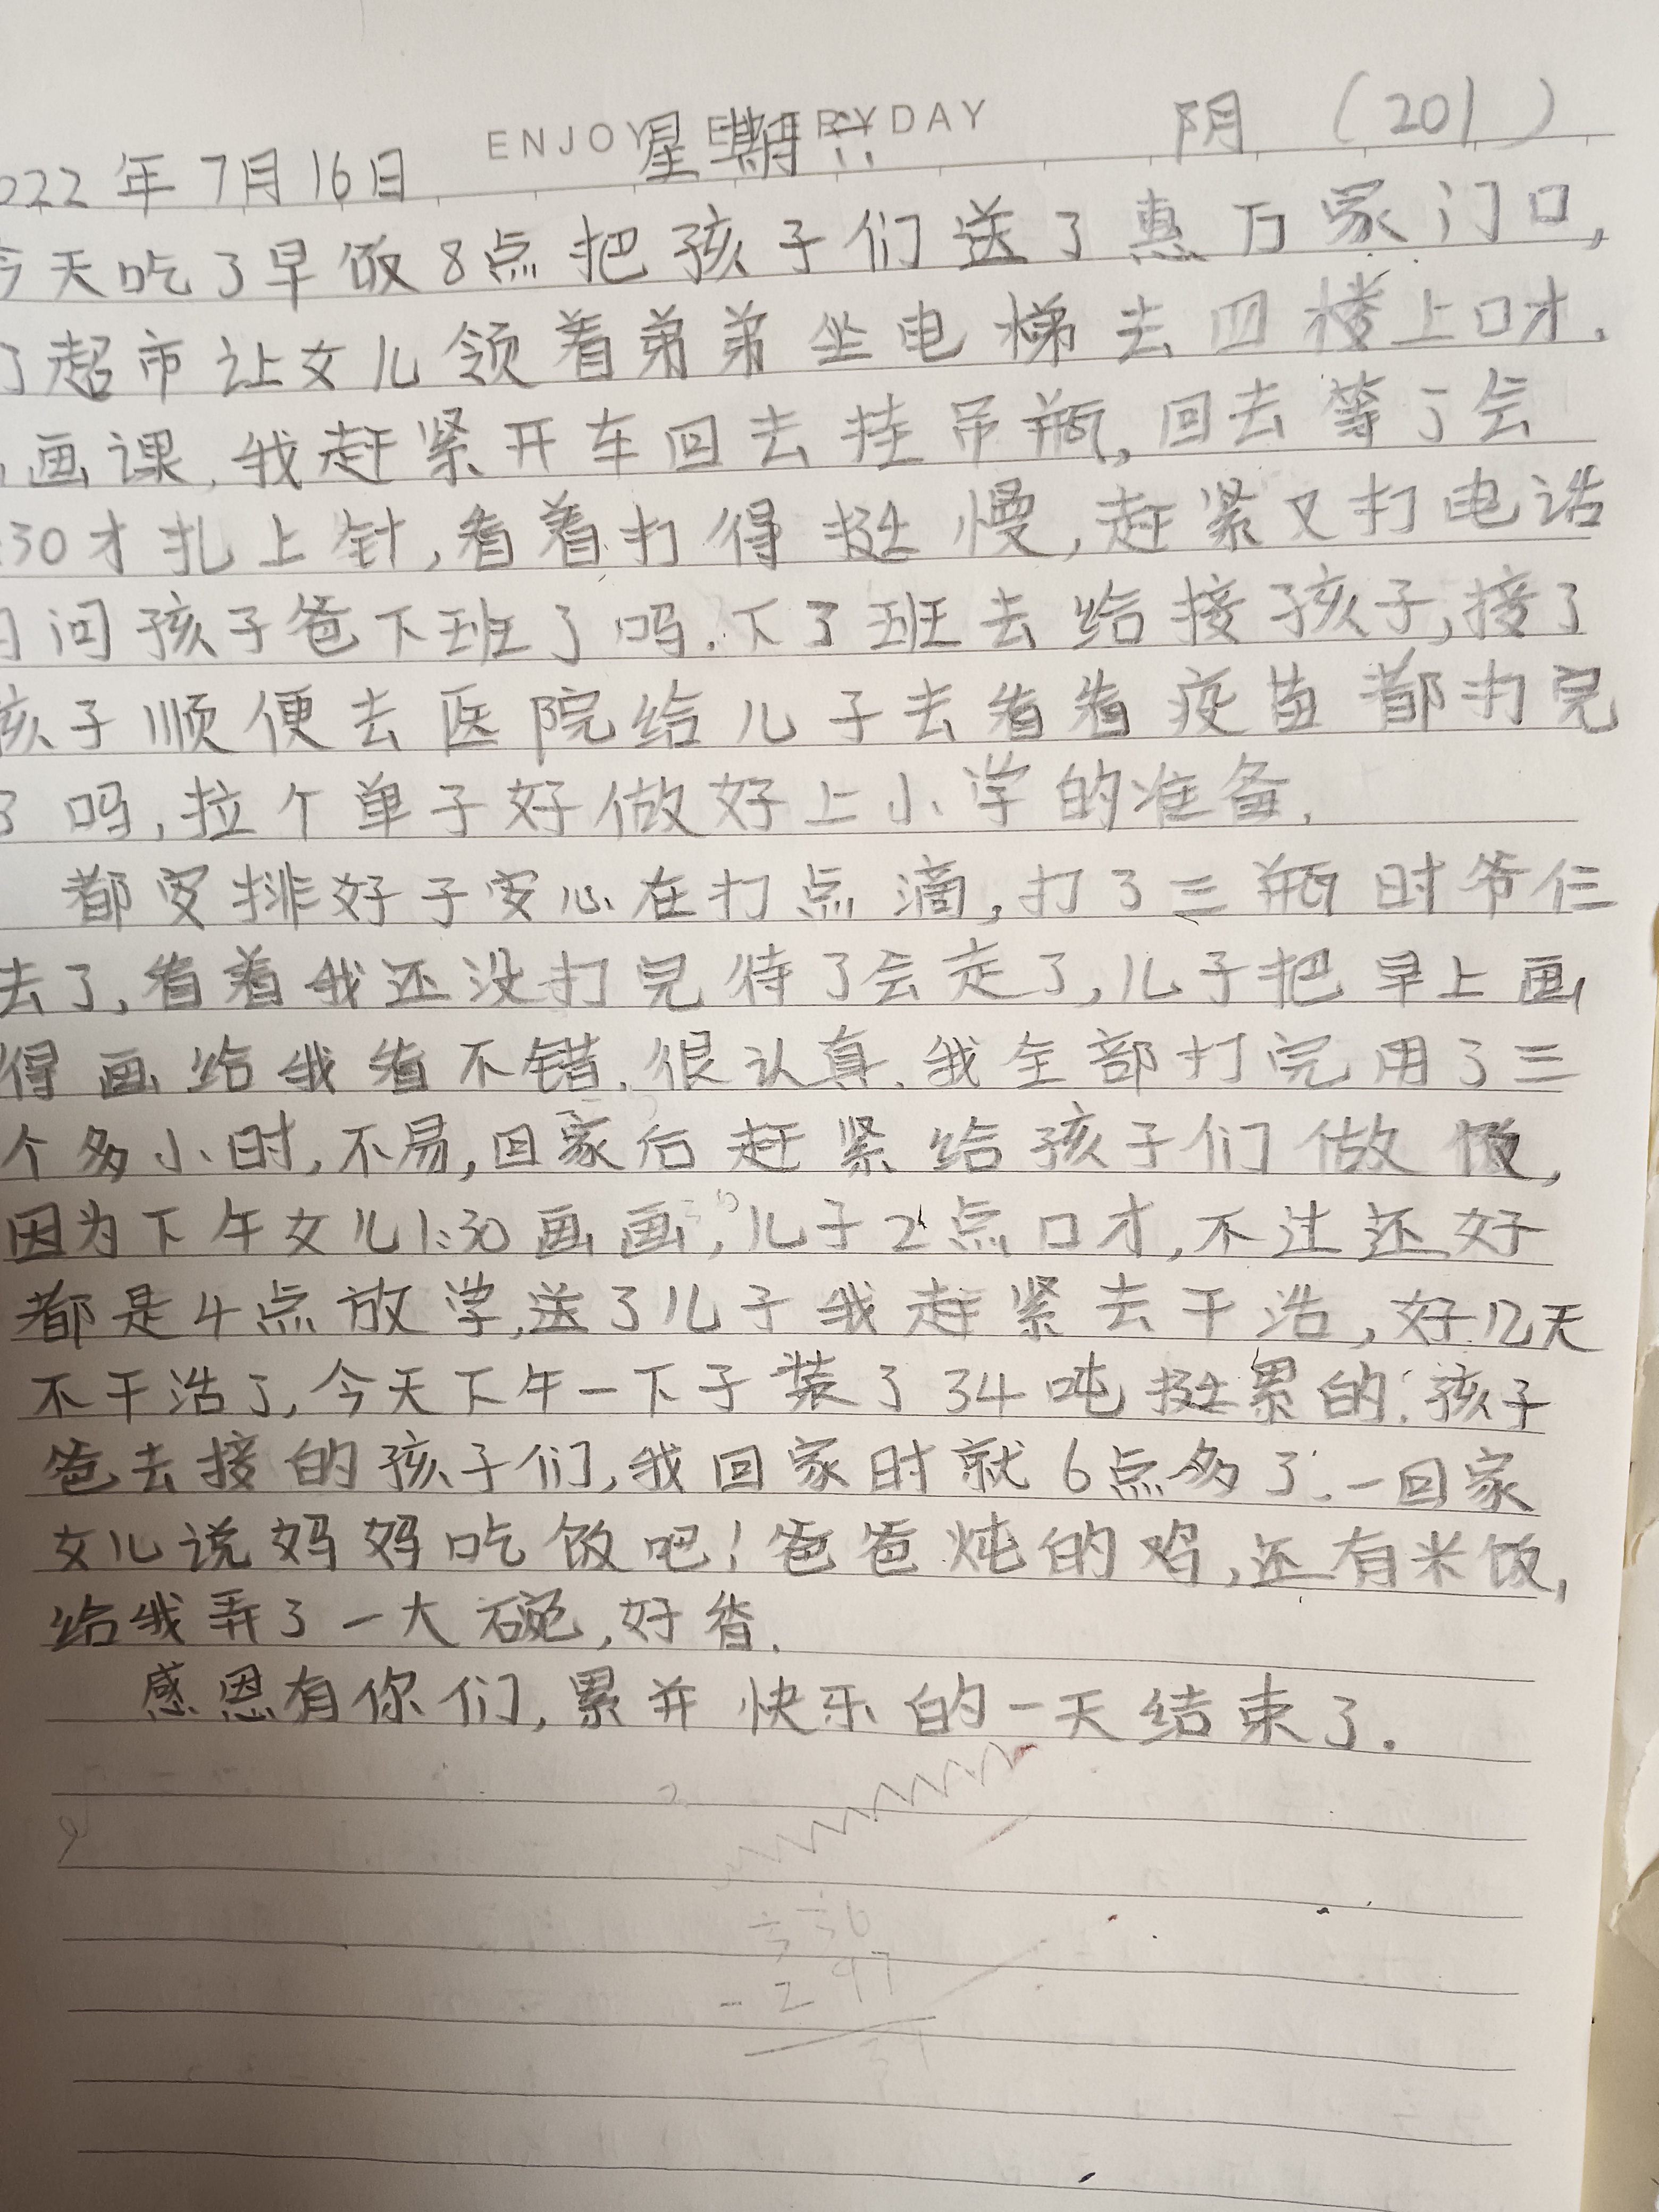 ENJOY EVERYDAY
022年7月16日 星期六 阴 (201)
今天吃了早饭8点把孩子们送了惠万家门口,
了超市让女儿领着弟弟坐电梯去四楼上口才.
画课,我赶紧开车回去挂吊瓶,回去等了会
:30才扎上针,看着打得挺慢,赶紧又打电话
问孩子爸下班了吗.下了班去给接孩子,接了
孩子顺便去医院给儿子去看看疫苗都打完
了吗,拉个单子好做好上小学的准备.
都安排好了安心在打点滴,打了三瓶时爷仨
去了,看着我还没打完待了会走了,儿子把早上画
得画给我看不错.很认真.我全部打完用了三
个多小时,不易,回家后赶紧给孩子们做饭,
因为下午女儿1:30画画,儿子2点口才,不过还好
都是4点放学,送了儿子我赶紧去干活,好几天
不干活了,今天下午一下子装了34吨挺累的.孩子
爸去接的孩子们,我回家时就6点多了.一回家
女儿说妈妈吃饭吧!爸爸炖的鸡,还有米饭,
给我弄了一大碗,好香.
感恩有你们,累并快乐的一天结束了.
- 297